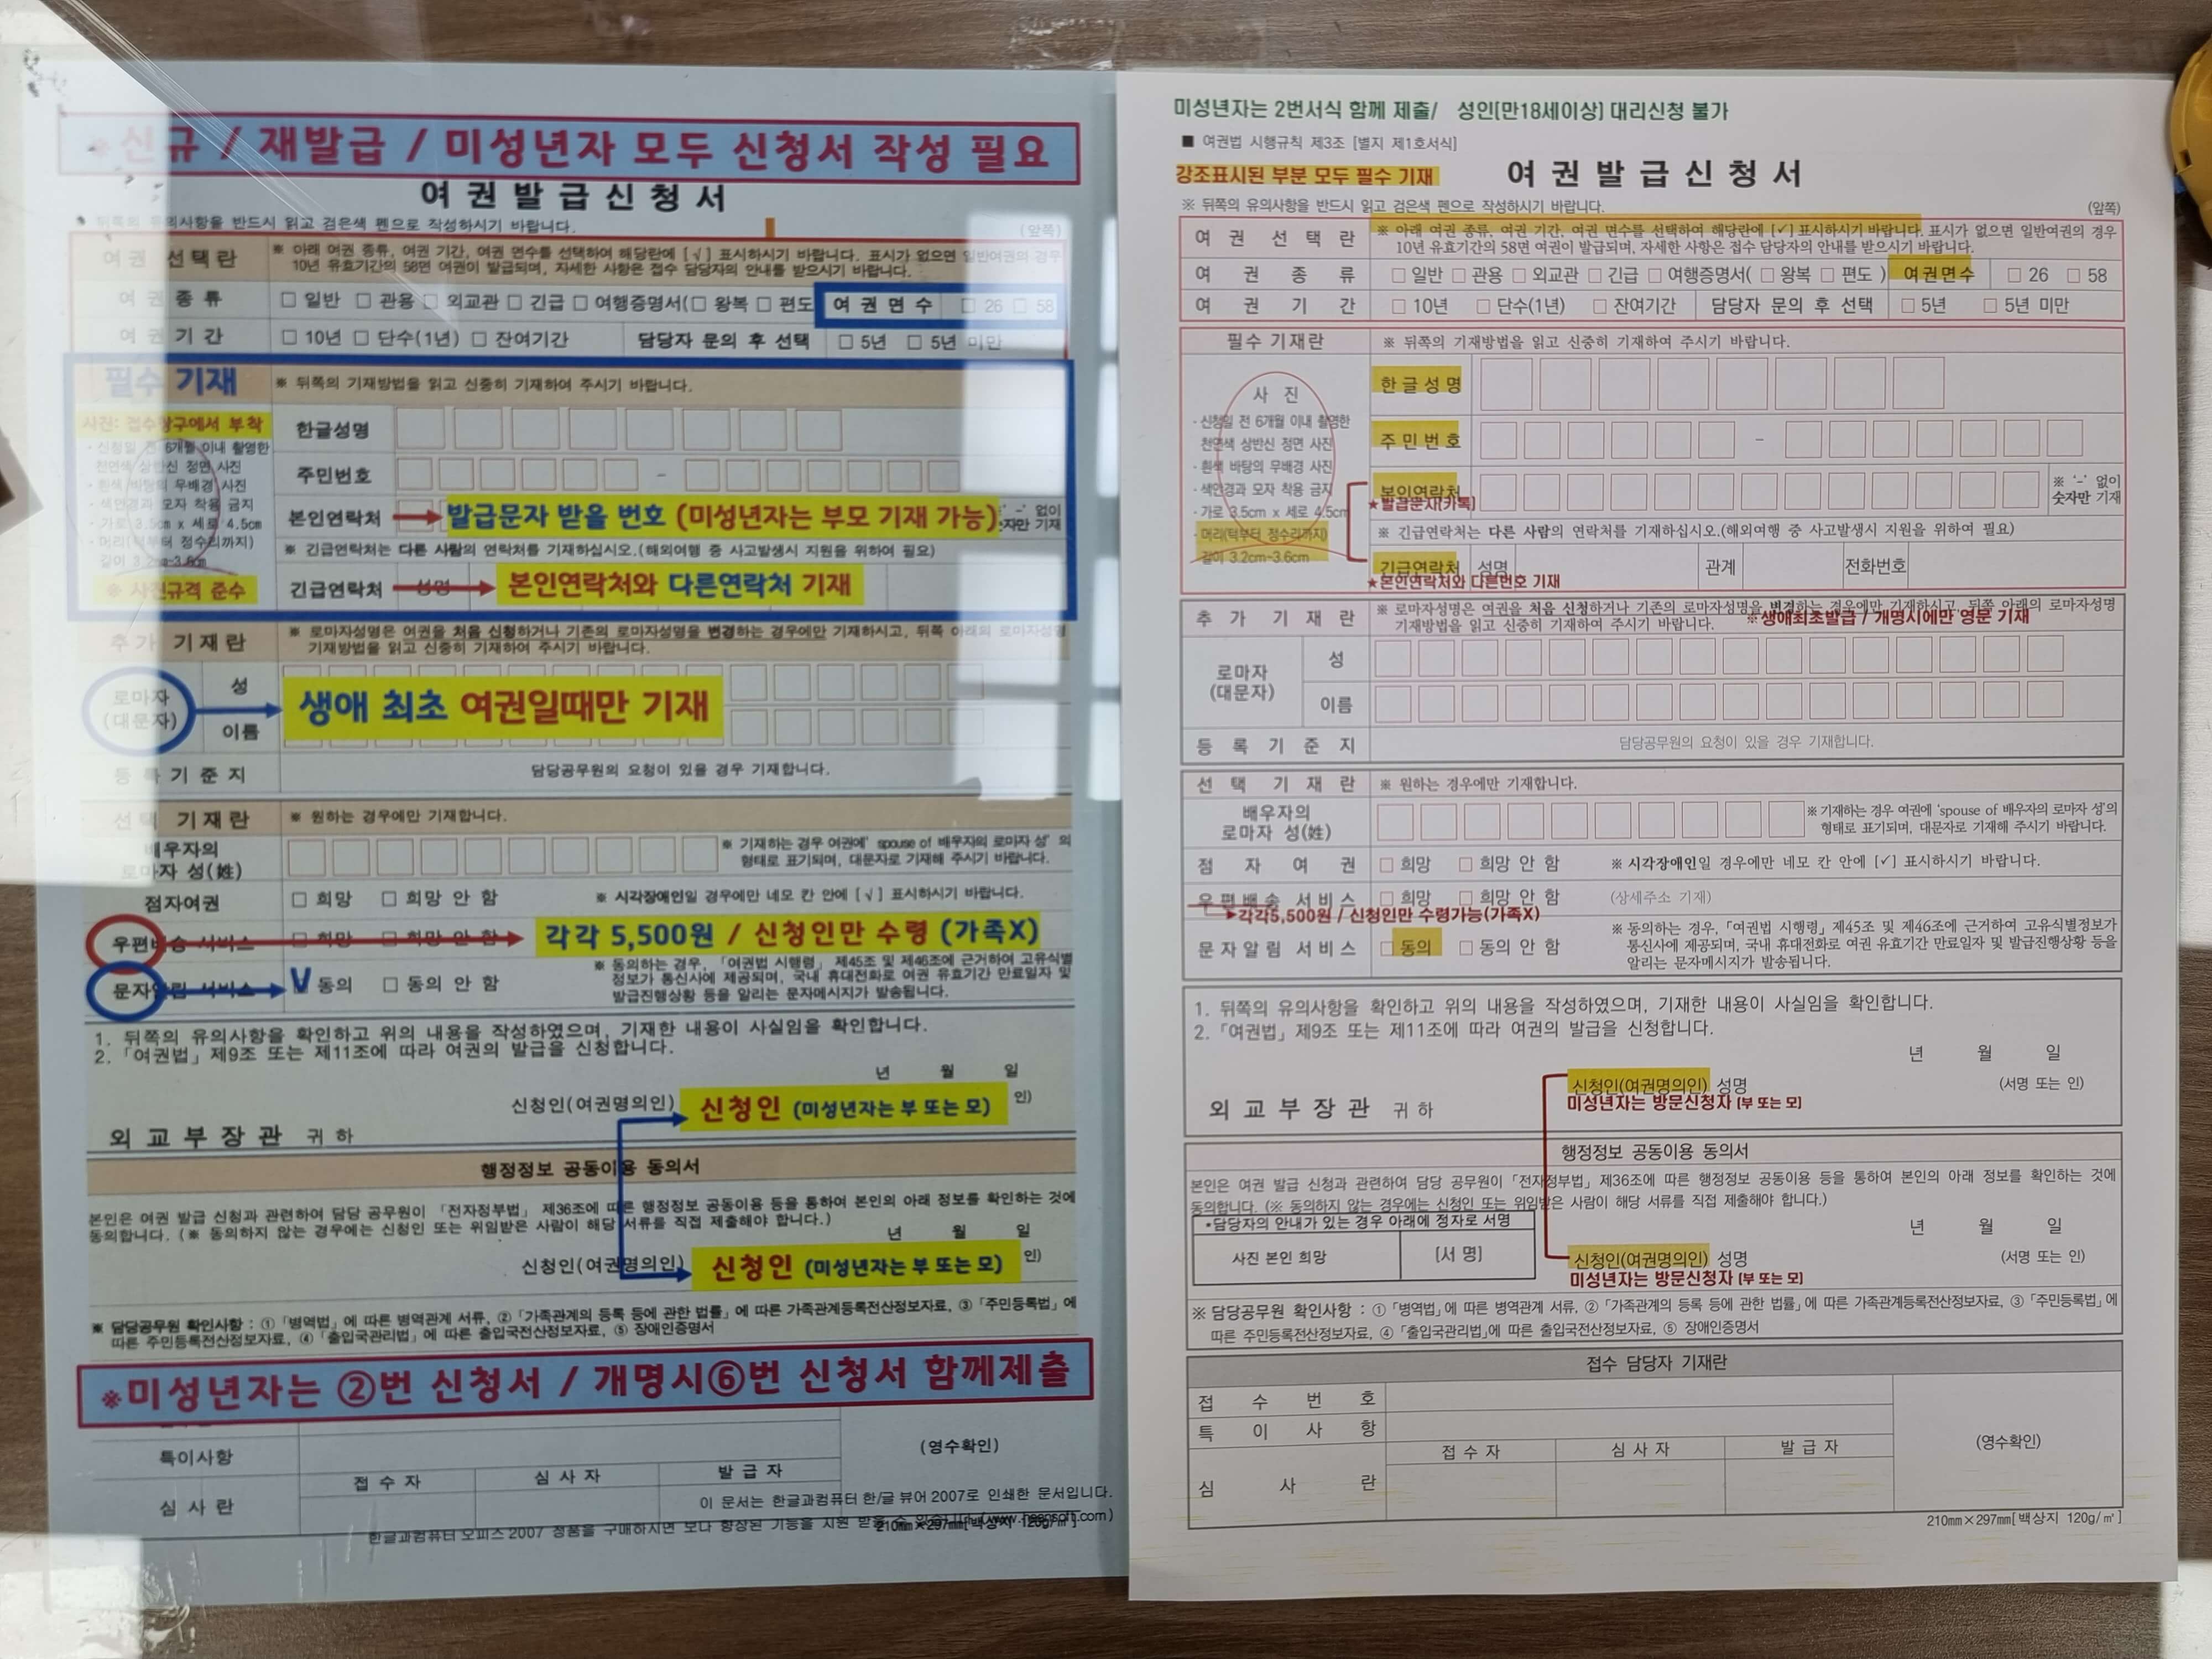 ※신규 / 재발급 / 미성년자 모두 신청서 작성 필요
여 권 발 급 신 청 서
뒤쪽의 유의사항을 반드시 읽고 검은색 펜으로 작성하시기 바랍니다.
(앞쪽)
여권 선택란
※ 아래 여권 종류, 여권 기간, 여권 면수를 선택하여 해당란에 [√] 표시하시기 바랍니다. 표시가 없으면 일반여권의 경우
10년 유효기간의 58면 여권이 발급되며, 자세한 사항은 접수 담당자의 안내를 받으시기 바랍니다.
여 권 종 류
□ 일반 □ 관용 □ 외교관 □ 긴급 □ 여행증명서(□ 왕복 □ 편도
여 권 면 수
□ 26 □ 58
여 권 기 간
□ 10년 □ 단수(1년) □ 잔여기간
담당자 문의 후 선택
□ 5년 □ 5년 미만
필수 기재
※ 뒤쪽의 기재방법을 읽고 신중히 기재하여 주시기 바랍니다.
사진: 접수창구에서 부착
- 신청일 전 6개월 이내 촬영한
천연색 상반신 정면 사진
- 흰색 바탕의 무배경 사진
- 색안경과 모자 착용 금지
- 가로 3.5cm x 세로 4.5cm
- 머리(턱부터 정수리까지)
길이 3.2cm~3.6cm
※ 사진규격 준수
한글성명
주민번호
–
본인연락처
발급문자 받을 번호 (미성년자는 부모 기재 가능)
'-' 없이
숫자만 기재
※ 긴급연락처는 다른 사람의 연락처를 기재하십시오.(해외여행 중 사고발생시 지원을 위하여 필요)
긴급연락처
성명
본인연락처와 다른연락처 기재
추가 기재란
※ 로마자성명은 여권을 처음 신청하거나 기존의 로마자성명을 변경하는 경우에만 기재하시고, 뒤쪽 아래의 로마자성명
기재방법을 읽고 신중히 기재하여 주시기 바랍니다.
로마자
(대문자)
성
이름
생애 최초 여권일때만 기재
등록기준지
담당공무원의 요청이 있을 경우 기재합니다.
선택 기재란
※ 원하는 경우에만 기재합니다.
배우자의
로마자 성(姓)
※ 기재하는 경우 여권에' spouse of 배우자의 로마자 성' 의
형태로 표기되며, 대문자로 기재해 주시기 바랍니다.
점자여권
□ 희망 □ 희망 안 함
※ 시각장애인일 경우에만 네모 칸 안에 [√] 표시하시기 바랍니다.
우편배송 서비스
□ 희망 □ 희망 안 함
각각 5,500원 / 신청인만 수령 (가족X)
문자알림 서비스
V 동의 □ 동의 안 함
※ 동의하는 경우, 「여권법 시행령」 제45조 및 제46조에 근거하여 고유식별
정보가 통신사에 제공되며, 국내 휴대전화로 여권 유효기간 만료일자 및
발급진행상황 등을 알리는 문자메시지가 발송됩니다.
1. 뒤쪽의 유의사항을 확인하고 위의 내용을 작성하였으며, 기재한 내용이 사실임을 확인합니다.
2. 「여권법」 제9조 또는 제11조에 따라 여권의 발급을 신청합니다.
년 월 일
신청인(여권명의인)
신청인 (미성년자는 부 또는 모)
인)
외 교 부 장 관 귀 하
행정정보 공동이용 동의서
본인은 여권 발급 신청과 관련하여 담당 공무원이 「전자정부법」 제36조에 따른 행정정보 공동이용 등을 통하여 본인의 아래 정보를 확인하는 것에
동의합니다. (※ 동의하지 않는 경우에는 신청인 또는 위임받은 사람이 해당 서류를 직접 제출해야 합니다.)
년 월 일
신청인(여권명의인)
신청인 (미성년자는 부 또는 모)
인)
※ 담당공무원 확인사항 : ①「병역법」에 따른 병역관계 서류, ②「가족관계의 등록 등에 관한 법률」에 따른 가족관계등록전산정보자료, ③「주민등록법」에
따른 주민등록전산정보자료, ④「출입국관리법」에 따른 출입국전산정보자료, ⑤ 장애인증명서
※미성년자는 ②번 신청서 / 개명시⑥번 신청서 함께제출
특이사항
(영수확인)
심 사 란
접 수 자
심 사 자
발 급 자
이 문서는 한글과컴퓨터 한/글 뷰어 2007로 인쇄한 문서입니다.
한글과컴퓨터 오피스 2007 정품을 구매하시면 보다 향상된 기능을 지원 받을 수
210㎜×297㎜[백상지 120g/㎡]
미성년자는 2번서식 함께 제출/ 성인[만18세이상] 대리신청 불가
■ 여권법 시행규칙 제3조 [별지 제1호서식]
강조표시된 부분 모두 필수 기재
여 권 발 급 신 청 서
※ 뒤쪽의 유의사항을 반드시 읽고 검은색 펜으로 작성하시기 바랍니다.
(앞쪽)
여 권 선 택 란
※ 아래 여권 종류, 여권 기간, 여권 면수를 선택하여 해당란에 [✓] 표시하시기 바랍니다. 표시가 없으면 일반여권의 경우
10년 유효기간의 58면 여권이 발급되며, 자세한 사항은 접수 담당자의 안내를 받으시기 바랍니다.
여 권 종 류
□ 일반 □ 관용 □ 외교관 □ 긴급 □ 여행증명서( □ 왕복 □ 편도 )
여권면수
□ 26 □ 58
여 권 기 간
□ 10년 □ 단수(1년) □ 잔여기간
담당자 문의 후 선택
□ 5년 □ 5년 미만
필수 기재란
※ 뒤쪽의 기재방법을 읽고 신중히 기재하여 주시기 바랍니다.
사 진
- 신청일 전 6개월 이내 촬영한
천연색 상반신 정면 사진
- 흰색 바탕의 무배경 사진
- 색안경과 모자 착용 금지
- 가로 3.5cm x 세로 4.5cm
- 머리(턱부터 정수리까지)
길이 3.2cm~3.6cm
한글성명
주민번호
–
본인연락처
★발급문자(카톡)
※ '-' 없이
숫자만 기재
※ 긴급연락처는 다른 사람의 연락처를 기재하십시오.(해외여행 중 사고발생시 지원을 위하여 필요)
긴급연락처
성명
관계
전화번호
★본인연락처와 다른번호 기재
추 가 기 재 란
※ 로마자성명은 여권을 처음 신청하거나 기존의 로마자성명을 변경하는 경우에만 기재하시고, 뒤쪽 아래의 로마자성명
기재방법을 읽고 신중히 기재하여 주시기 바랍니다.
※생애최초발급 / 개명시에만 영문 기재
로마자
(대문자)
성
이름
등 록 기 준 지
담당공무원의 요청이 있을 경우 기재합니다.
선 택 기 재 란
※ 원하는 경우에만 기재합니다.
배우자의
로마자 성(姓)
※ 기재하는 경우 여권에 'spouse of 배우자의 로마자 성'의
형태로 표기되며, 대문자로 기재해 주시기 바랍니다.
점 자 여 권
□ 희망 □ 희망 안 함
※ 시각장애인일 경우에만 네모 칸 안에 [✓] 표시하시기 바랍니다.
우 편 배 송 서 비 스
□ 희망 □ 희망 안 함
(상세주소 기재)
각각5,500원 / 신청인만 수령가능(가족X)
문 자 알 림 서 비 스
□ 동의 □ 동의 안 함
※ 동의하는 경우, 「여권법 시행령」 제45조 및 제46조에 근거하여 고유식별정보가
통신사에 제공되며, 국내 휴대전화로 여권 유효기간 만료일자 및 발급진행상황 등을
알리는 문자메시지가 발송됩니다.
1. 뒤쪽의 유의사항을 확인하고 위의 내용을 작성하였으며, 기재한 내용이 사실임을 확인합니다.
2. 「여권법」 제9조 또는 제11조에 따라 여권의 발급을 신청합니다.
년 월 일
신청인(여권명의인) 성명
(서명 또는 인)
미성년자는 방문신청자 [부 또는 모]
외 교 부 장 관 귀 하
행정정보 공동이용 동의서
본인은 여권 발급 신청과 관련하여 담당 공무원이 「전자정부법」 제36조에 따른 행정정보 공동이용 등을 통하여 본인의 아래 정보를 확인하는 것에
동의합니다. (※ 동의하지 않는 경우에는 신청인 또는 위임받은 사람이 해당 서류를 직접 제출해야 합니다.)
*담당자의 안내가 있는 경우 아래에 정자로 서명
사진 본인 희망
[서 명]
년 월 일
신청인(여권명의인) 성명
(서명 또는 인)
미성년자는 방문신청자 [부 또는 모]
※ 담당공무원 확인사항 : ①「병역법」에 따른 병역관계 서류, ②「가족관계의 등록 등에 관한 법률」에 따른 가족관계등록전산정보자료, ③「주민등록법」에
따른 주민등록전산정보자료, ④「출입국관리법」에 따른 출입국전산정보자료, ⑤ 장애인증명서
접수 담당자 기재란
접 수 번 호
특 이 사 항
심 사 란
접 수 자
심 사 자
발 급 자
(영수확인)
210㎜×297㎜[백상지 120g/㎡]